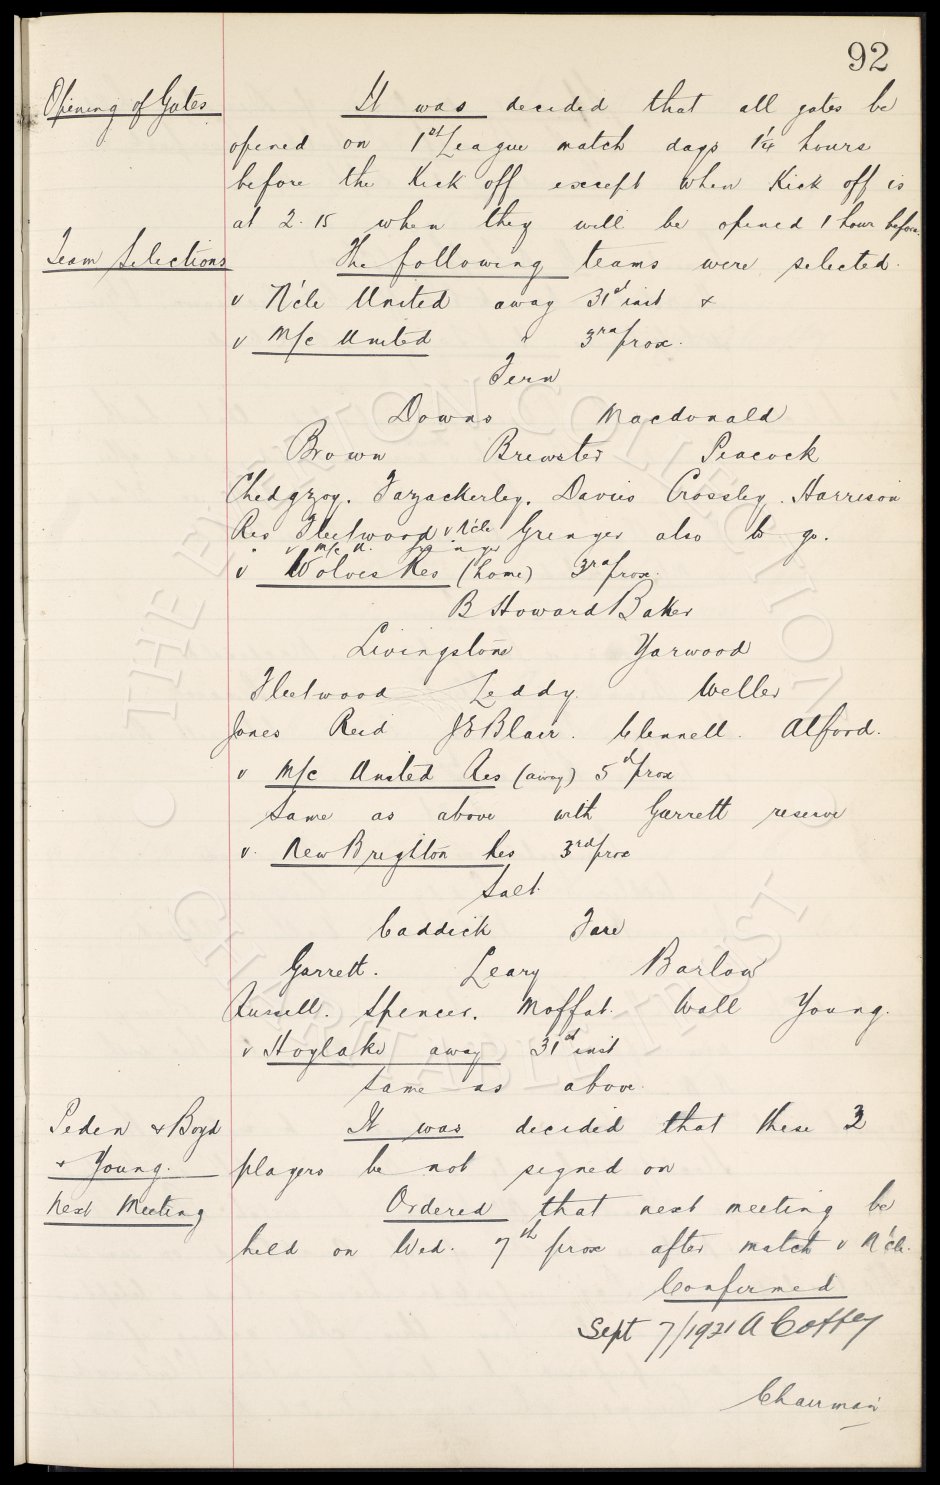 92
Opening of Gates It was decided that all gates be
opened on 1st League match days 1¼ hours
before the Kick off except when Kick off is
at 2.15 when they will be opened 1 hour before.
Team Selections The following teams were selected.
v N'cle United away 31st inst &
v M/c United " 3rd prox.
Fern
Downs Macdonald
Brown Brewster Peacock
Chedgzoy. Fazackerley. Davies Crossley. Harrison
Res Fleetwood v N'cle Grenyer also to go.
" v M/c U. Grenyer
v Wolves Res (home) 3rd prox.
B Howard Baker
Livingstone Yarwood
Fleetwood Leddy Weller
Jones Reid J E Blair. Clennell. Alford.
v M/c United Res (away) 5th prox
Same as above with Garrett reserve
v. New Brighton Res 3rd prox
Salt.
Caddick Tare
Garrett. Leary Barlow
Russell. Spencer. Moffat. Wall Young.
v Hoylake away 31st inst
Same as above.
Peden & Boyd It was decided that these 3
& Young. players be not signed on
Next Meeting Ordered that next meeting be
held on Wed. 7th prox after match v N'cle.
Confirmed
Sept 7/1921 A Coffey
Chairman
THE EVERTON COLLECTION
CHARITABLE TRUST